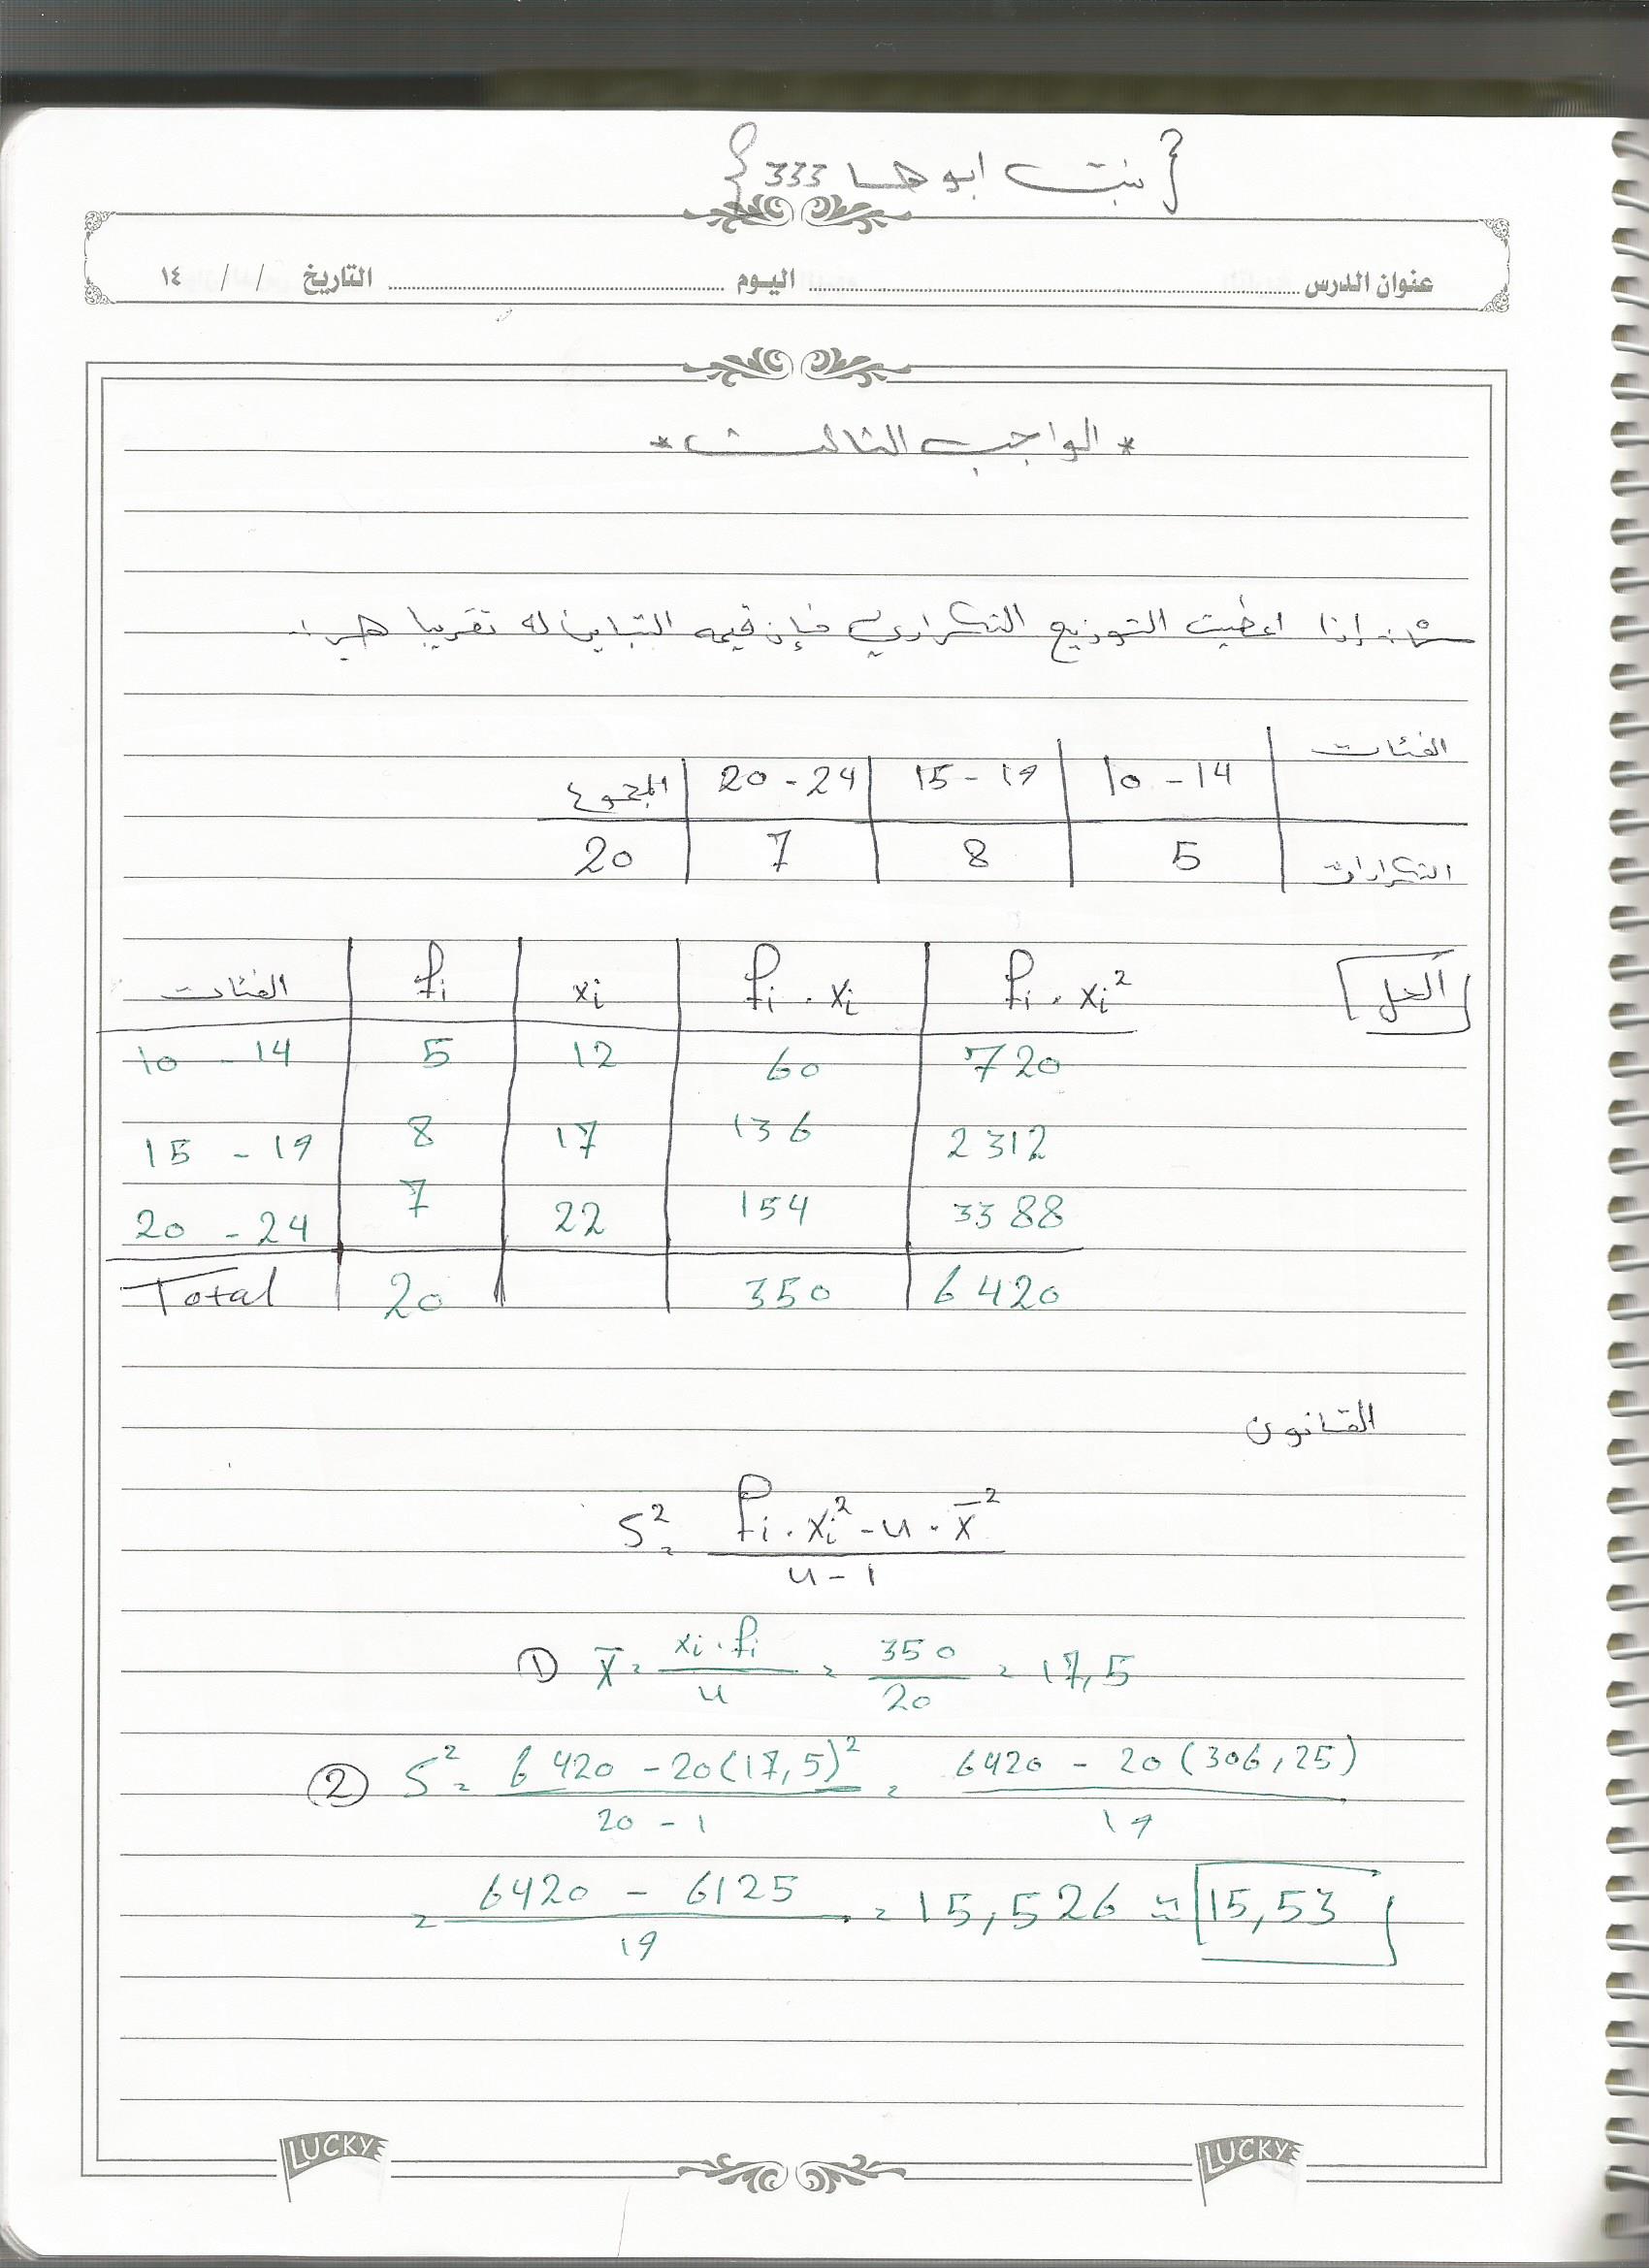 {بنت ابوها 333}
عنوان الدرس ........ اليوم ........ التاريخ / / ١٤
* الواجب الثالث *
س: إذا اعطيت التوزيع التكراري فإن قيمه التباين له تقريبا هي:
الفئات | 10 - 14 | 15 - 19 | 20 - 24 | المجموع
التكرارات | 5 | 8 | 7 | 20
الحل
الفئات | fi | xi | fi . xi | fi . xi²
10 - 14 | 5 | 12 | 60 | 720
15 - 19 | 8 | 17 | 136 | 2312
20 - 24 | 7 | 22 | 154 | 3388
Total | 20 | | 350 | 6420
القانون
S² = (fi . xi² - n . x̄²) / (n - 1)
① x̄ = (xi . fi) / n = 350 / 20 = 17,5
② S² = (6420 - 20(17,5)²) / (20 - 1) = (6420 - 20(306,25)) / 19
= (6420 - 6125) / 19 = 15,526 ≈ 15,53
LUCKY LUCKY